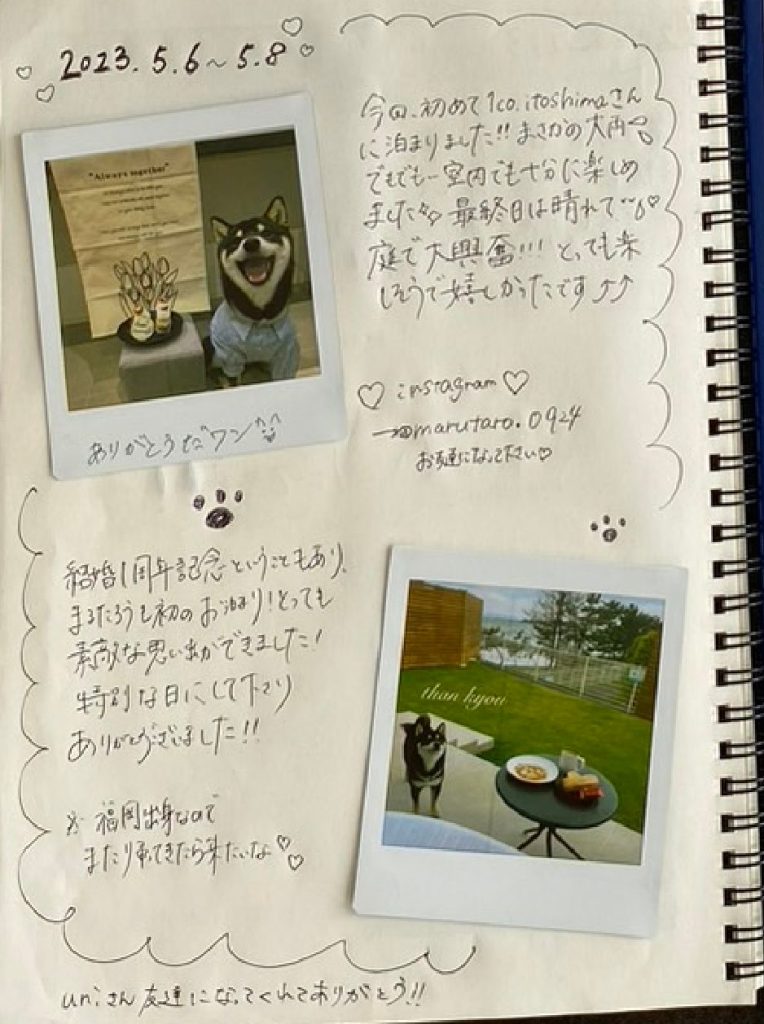 2023.5.6～5.8
今回、初めて1co.itoshimaさん
に泊まりました!!まさかの大雨
でもでも一室内でも十分に楽しめ
ました 最終日は晴れて
庭で大興奮!!! とっても楽
しそうで嬉しかったです⤴⤴
"Always together"
ありがとうだワン
♡ instagram ♡
→@marutaro.0924
お友達になって下さい♡
結婚1周年記念ということもあり、
まるたろうも初のお泊まり!とっても
素敵な思い出ができました!
特別な日にして下さり
ありがとうございました!!
thankyou
※ 福岡出身なので
また帰ってきたら来たいな♡♡
uniさん友達になってくれてありがとう!!